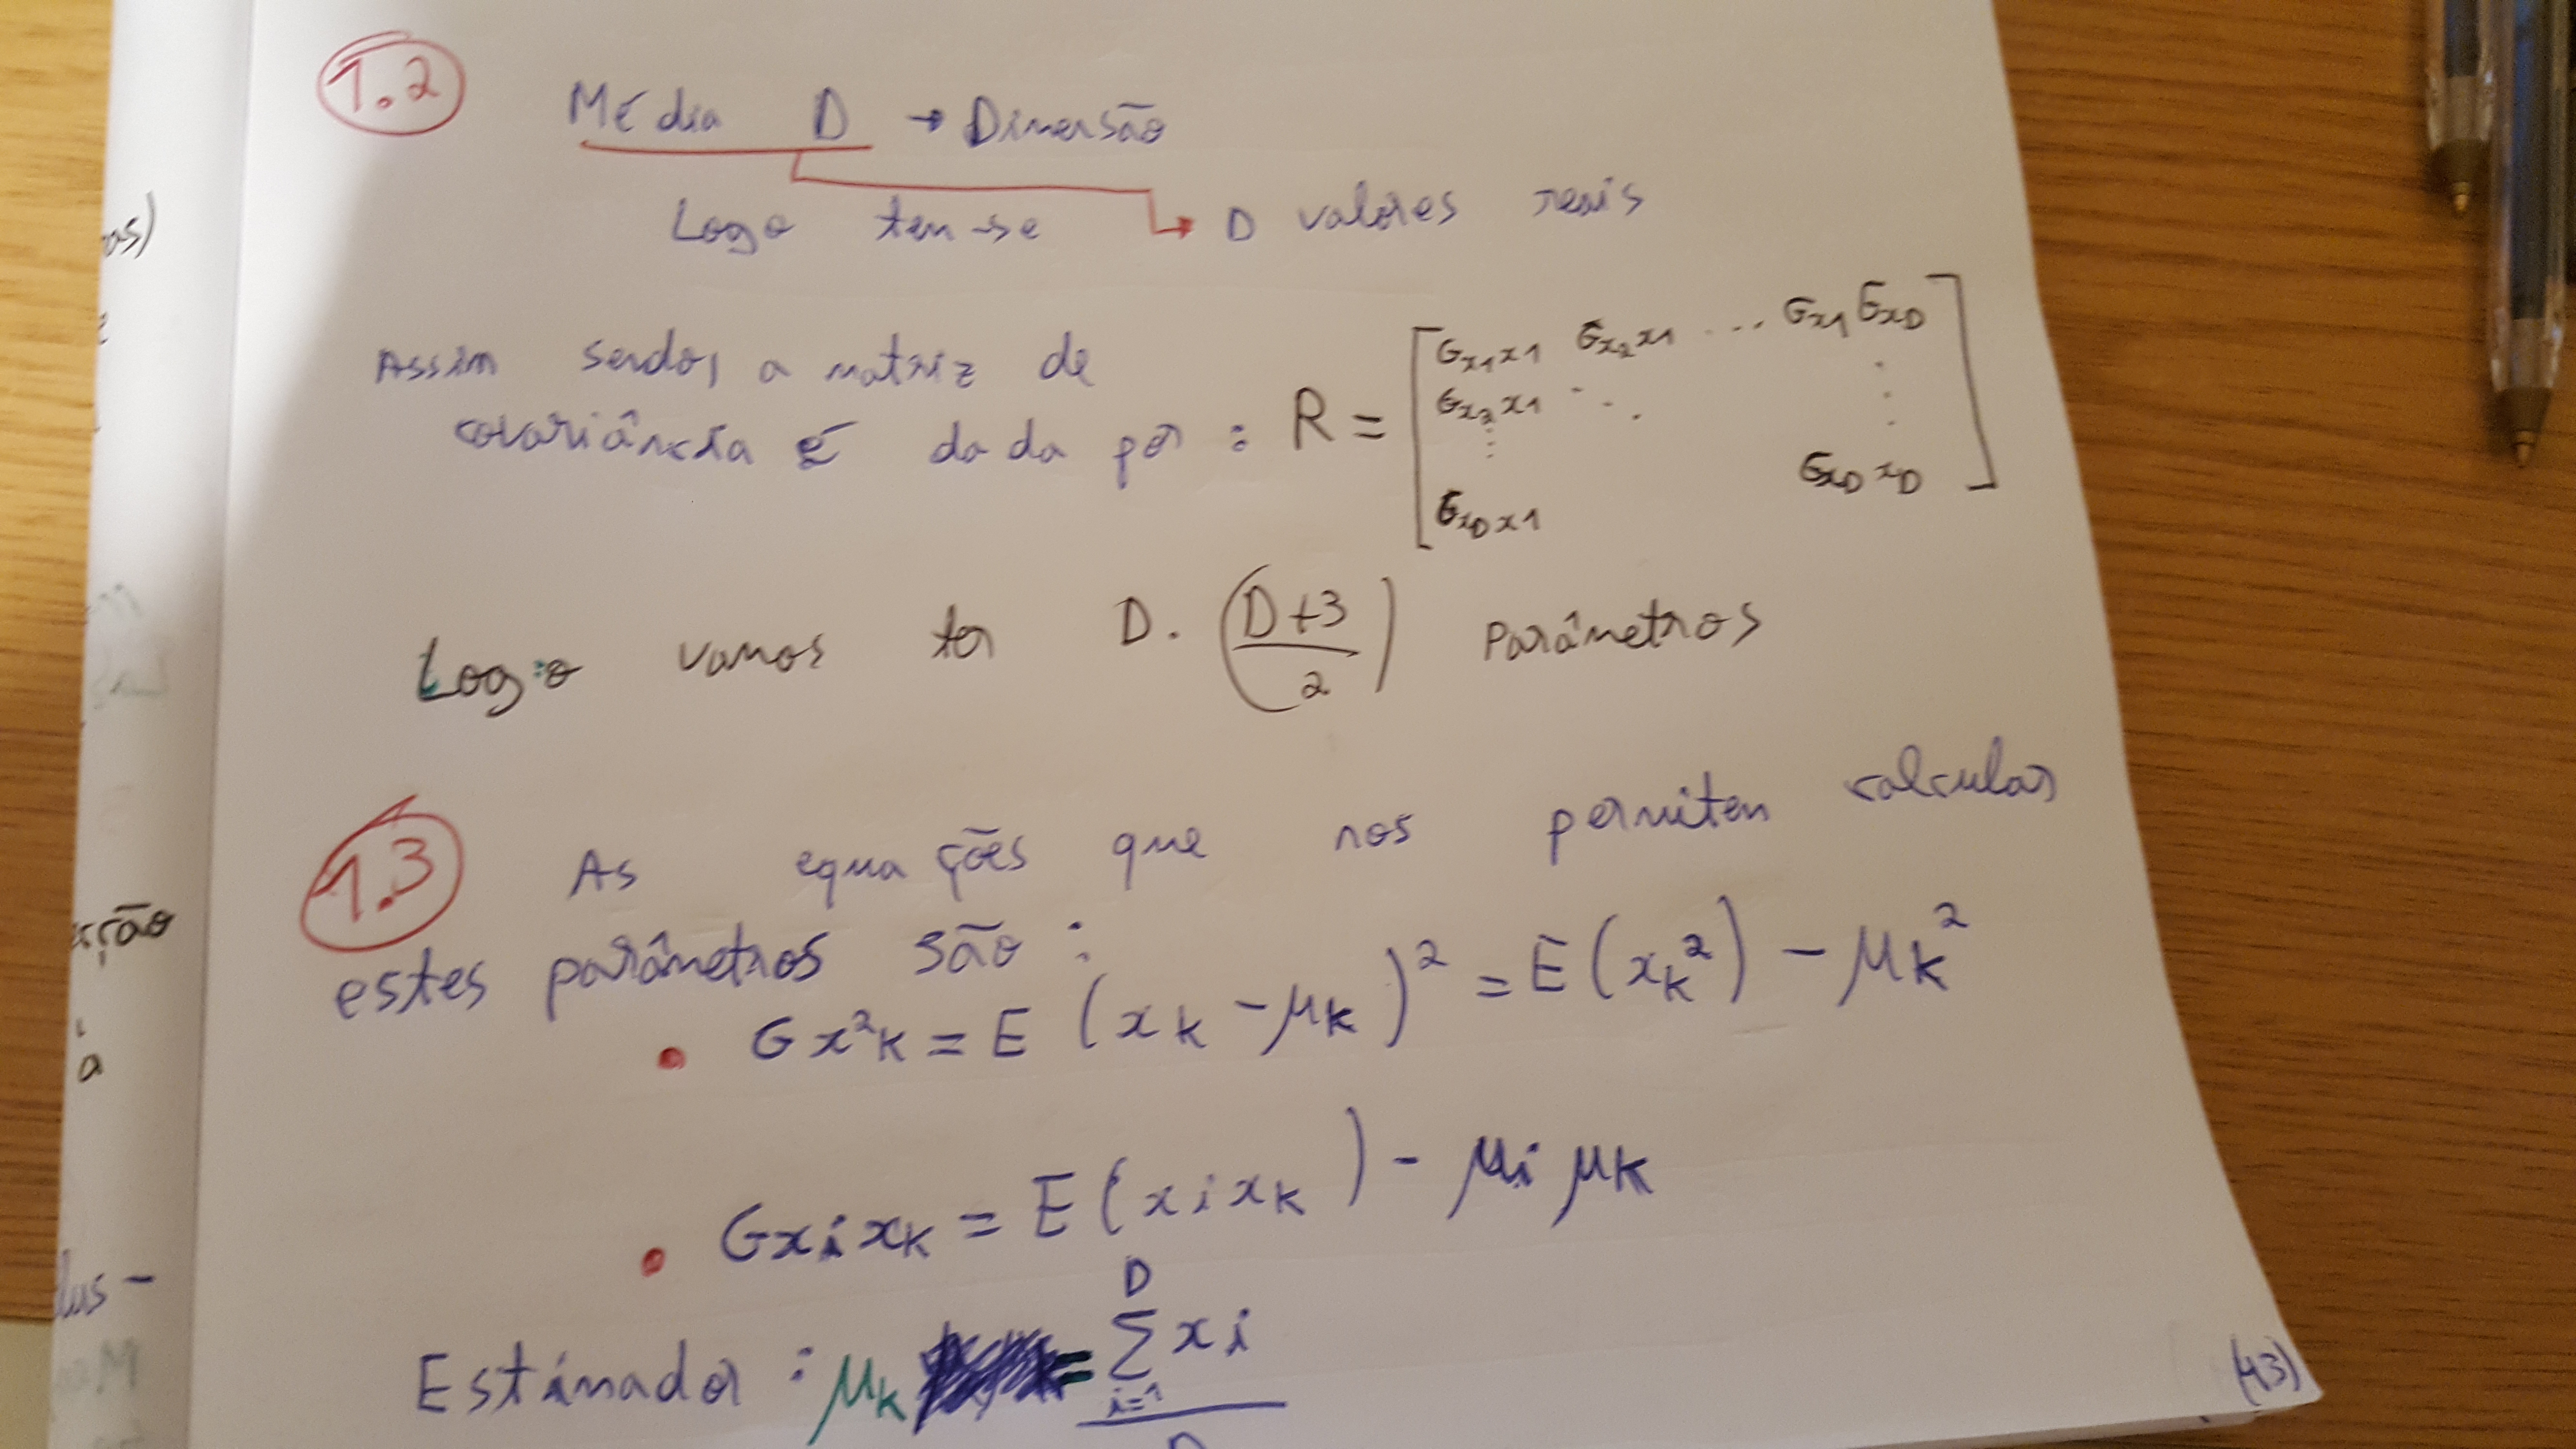 1.2
Média D → Dimensão
Logo tem-se → D valores reais
Assim sendo, a matriz de
covariância é dada por : R = [
Gx1x1 Gx2x1 ... Gx1 GxD
Gx2x1 ⋱ ⋮
⋮
GxDx1 GxDxD
]
Logo vamos ter D. (D+3 / 2) Parâmetros
1.3 As equações que nos permitem calcular
estes parâmetros são :
• Gx²k = E (xk - μk)² = E(xk²) - μk²
• Gxixk = E(xixk) - μi μk
Estimador : μk = D Σ i=1 xi
(43)
as)
cção
a
dus-